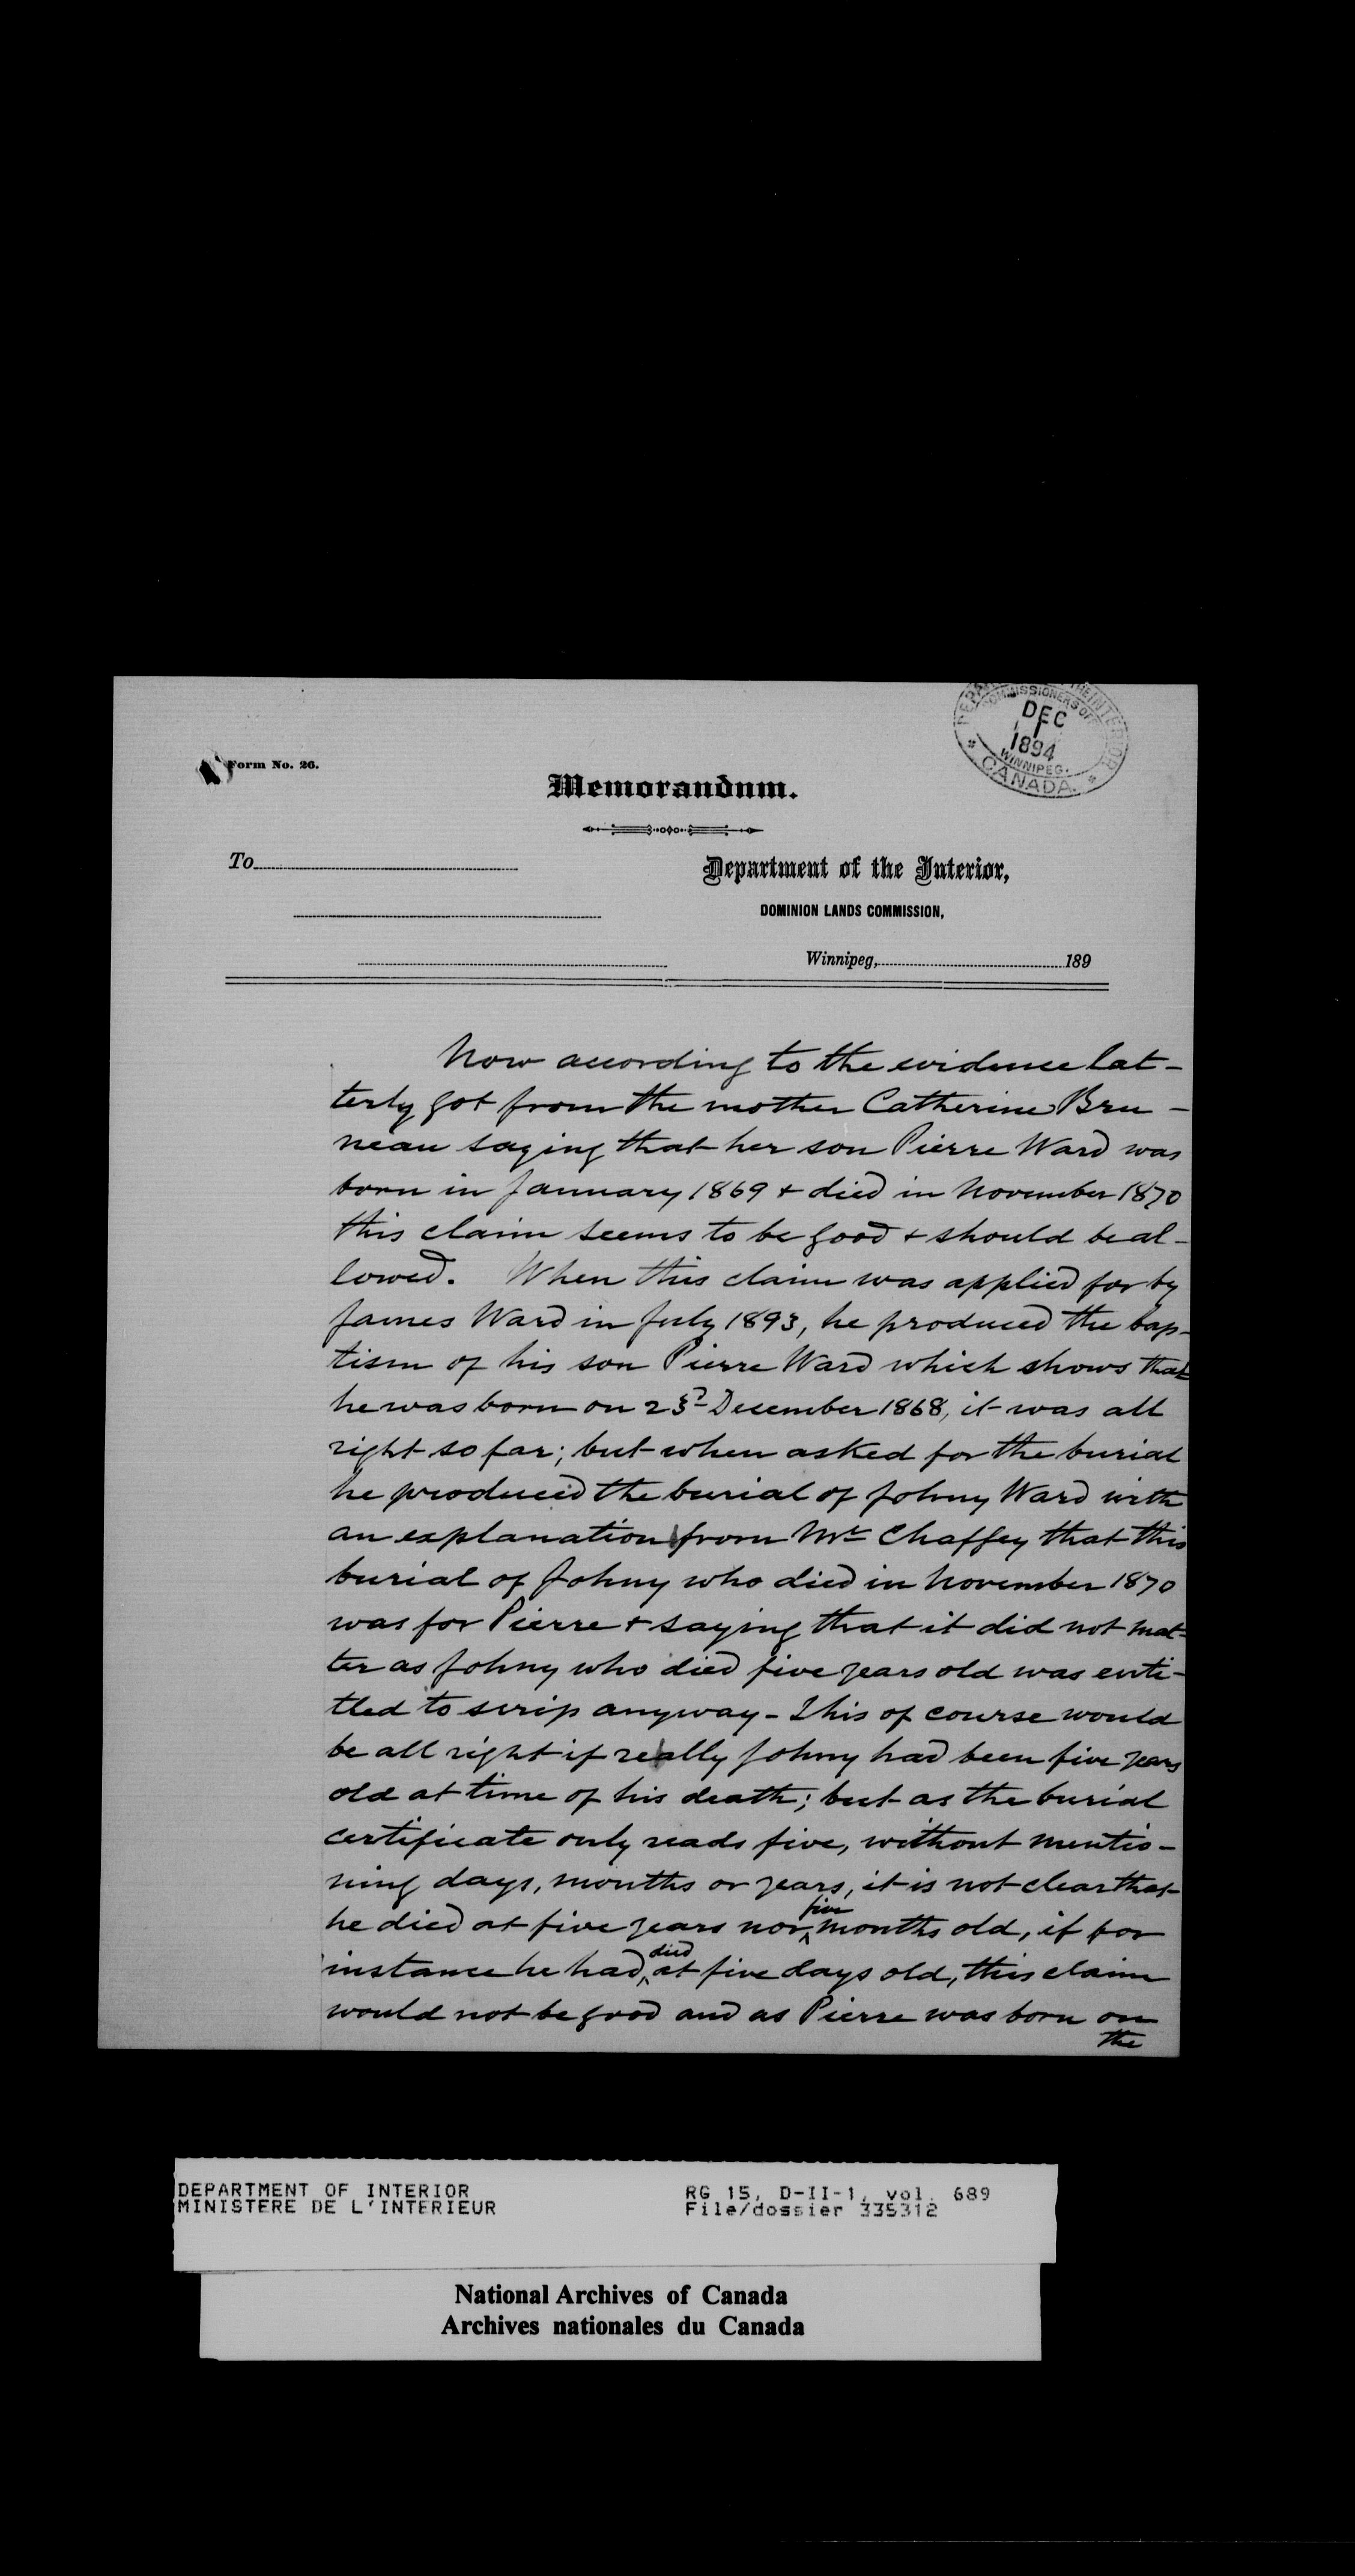 DEPARTMENT OF THE INTERIOR
COMMISSIONERS OFFICE
DEC
1
1894
WINNIPEG.
* CANADA. *
Form No. 26.
Memorandum.
To
Department of the Interior,
DOMINION LANDS COMMISSION,
Winnipeg, 189
Now according to the evidence lat-
terly got from the mother Catherine Bru-
neau saying that her son Pierre Ward was
born in January 1869 + died in November 1870
this claim seems to be good + should be al-
lowed. When this claim was applied for by
James Ward in July 1893, he produced the bap-
tism of his son Pierre Ward which shows that
he was born on 23d December 1868, it was all
right so far; but when asked for the burial
he produced the burial of Johny Ward with
an explanation from Mr Chaffey that this
burial of Johny who died in November 1870
was for Pierre + saying that it did not mat-
ter as Johny who died five years old was enti-
tled to scrip anyway - This of course would
be all right if really Johny had been five years
old at time of his death; but as the burial
certificate only reads five, without mentio-
ning days, months or years, it is not clear that
he died at five years nor five months old, if for
instance he had died at five days old, this claim
would not be good and as Pierre was born on
the
DEPARTMENT OF INTERIOR
MINISTERE DE L'INTERIEUR
RG 15, D-II-1, vol. 689
File/dossier 335312
National Archives of Canada
Archives nationales du Canada